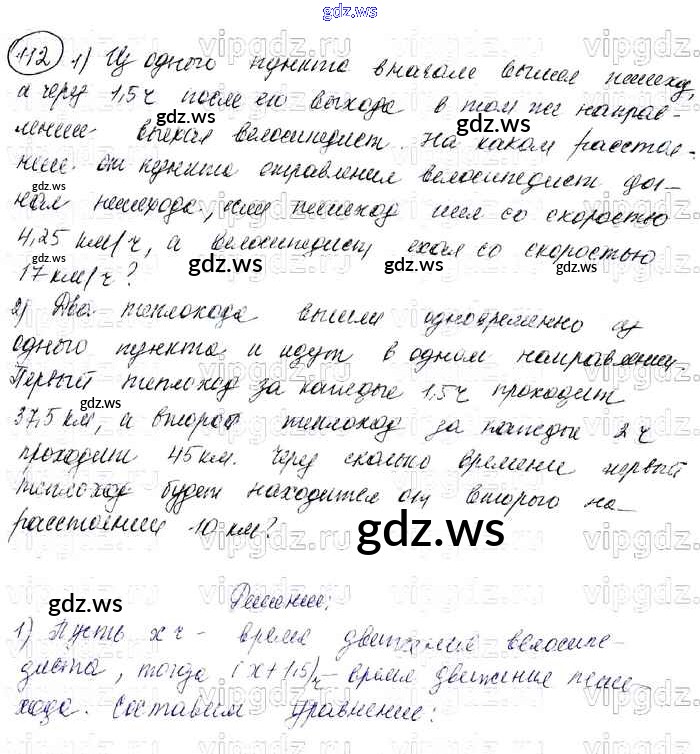 gdz.ws
112 1) Из одного пункта вначале вышел пешеход,
а через 1,5 ч после его выхода в том же направ-
лении выехал велосипедист. На каком расстоя-
нии от пункта отправления велосипедист дог-
нал пешехода, если пешеход шел со скоростью
4,25 км/ч, а велосипедист ехал со скоростью
17 км/ч?
2) Два теплохода вышли одновременно из
одного пункта и идут в одном направлении.
Первый теплоход за каждые 1,5 ч проходит
37,5 км, а второй теплоход за каждые 2 ч
проходит 45 км. Через сколько времени первый
теплоход будет находится от второго на
расстоянии 10 км?
Решение:
1) Пусть x ч - время движения велосипе-
диста, тогда (x+1,5) ч - время движение пеше-
хода. Составим уравнение: